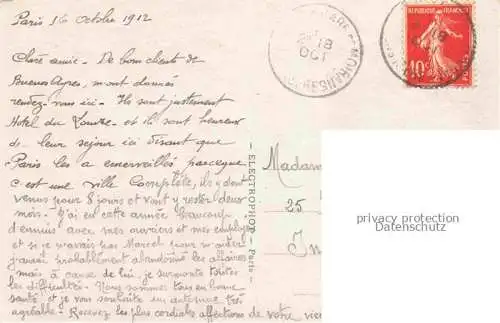 Paris 16 Octobre 1912
Chère amie. De bons clients de
Buenos Ayres, m'ont donnés
rendez-vous ici. Ils sont justement
Hotel du Louvre et ils sont heureux
de leur séjour ici disant que
Paris les a emerveillés parceque
c'est une ville Complète, ils y doivent
venus pour 8 jours et vont y rester deux
mois. J'ai eu cette année beaucoup
d'ennuis avec mes ouvriers et mes employés
et si je n'avais pas Marcel pour m'aider
j'aurais probablement abandonné les affaires
mais à cause de lui, je surmonte toutes
les difficultés. Nous sommes tous en bonne
santé et je vous souhaite un automne très
agréable. Recevez les plus cordiales affections de votre vieil
ELECTROPHOT - Paris
18
OCT
REPUBLIQUE FRANÇAISE
10
POSTES
Madam
25
privacy protection
Datenschutz